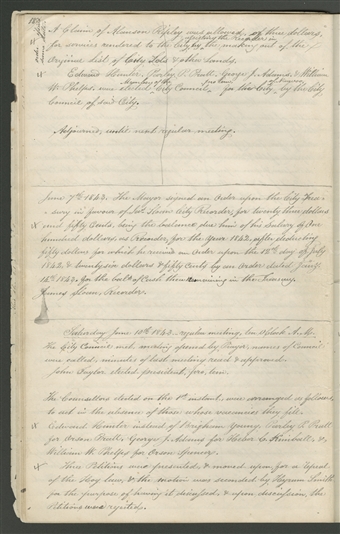 A Claim of Manson Rigby was allowed, of three dollars,
for services rendered to the City by assisting the Recorder in the making out of the
Original List of City Lots & other Lands.
Edward Hunter, Parley P. Pratt, George J. Adams, & William
W. Phelps, were elected City Council, pro tem in by the City
Council of said City.
Adjourned, until next regular meeting.
June 7th 1843. The Mayor signed an Order upon the City Trea-
sury in favour of Jas. Sloan City Recorder, for twenty three dollars
and fifty Cents, being the balance due him of his Salary of One
hundred dollars, as Recorder, for the year 1842, after deducting
fifty dollars for which he received an Order upon the 12th day of July
1842, & twenty six dollars & fifty Cents by an Order dated Jany.
1843, for the Cash then remaining in the Treasury.
James Sloan, Recorder.
Saturday June 10th 1843. regular meeting, 10 o'Clock A.M.
the City Council met, meeting opened by Prayer, names of Council
were called, minutes of last meeting read & approved.
John Taylor elected president, pro, tem.
The Councillors elected on the 1st instant, were arranged as follows,
to act in the absence of those whose vacancies they fill.
Edward Hunter instead of Brigham Young, Parley P. Pratt
for Orson Pratt, George J. Adams for Heber C. Kimball, &
William W. Phelps for Orson Spencer.
Three Petitions were presented, & moved upon for a repeal
of the Hog law, & the motion was seconded by Hyrum Smith
for the purpose of having it discussed, & upon discussion, the
Petitions were rejected.